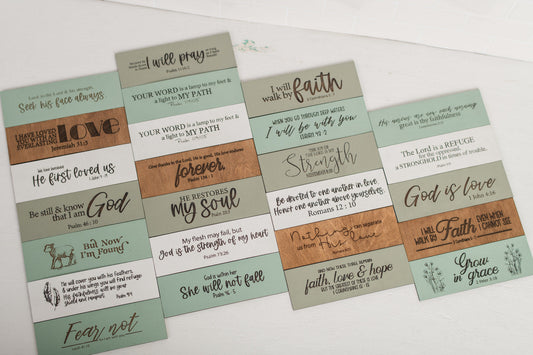 Seek his face always.
I HAVE LOVED
YOU WITH AN
EVERLASTING
LOVE
Jeremiah 31:3
He first loved us
Be still & know
that I am
God
Psalm 46 : 10
But Now
I'm Found
He will cover you with his feathers
& under his wings you will find refuge
his faithfulness will be your
shield and rampart
Psalm 91:4
Fear not
I will pray
YOUR WORD is a lamp to my feet &
a light to MY PATH
YOUR WORD is a lamp to my feet &
a light to MY PATH
Give thanks to the Lord, He is good. His love endures
forever.
Psalm 136 : 1
HE RESTORES
my Soul
Psalm 23:3
My flesh may fail, but
God is the strength of my heart
Psalm 73:26
God is within her
She will not fall
Psalm 46 : 5
I will
walk by
faith
2 Corinthians 5 : 7
WHEN YOU GO THROUGH DEEP WATERS
I will be with you
ISAIAH 43:2
THE JOY OF
THE LORD IS MY
Strength
Be devoted to one another in love.
Honor one another above yourselves.
Romans 12 : 10
Nothing can separate
us from His love
AND NOW THESE THREE REMAIN
faith, love & hope
BUT THE GREATEST OF THESE IS LOVE
1 CORINTHIANS 13 : 13
great is thy faithfulness
The Lord is a REFUGE
for the oppressed,
a STRONGHOLD in times of trouble.
God is love
1 John 4:16
I WILL
WALK BY
Faith
EVEN WHEN
I CANNOT SEE
2 Corinthians 5 : 7
Grow
in grace
2 Peter 3:18